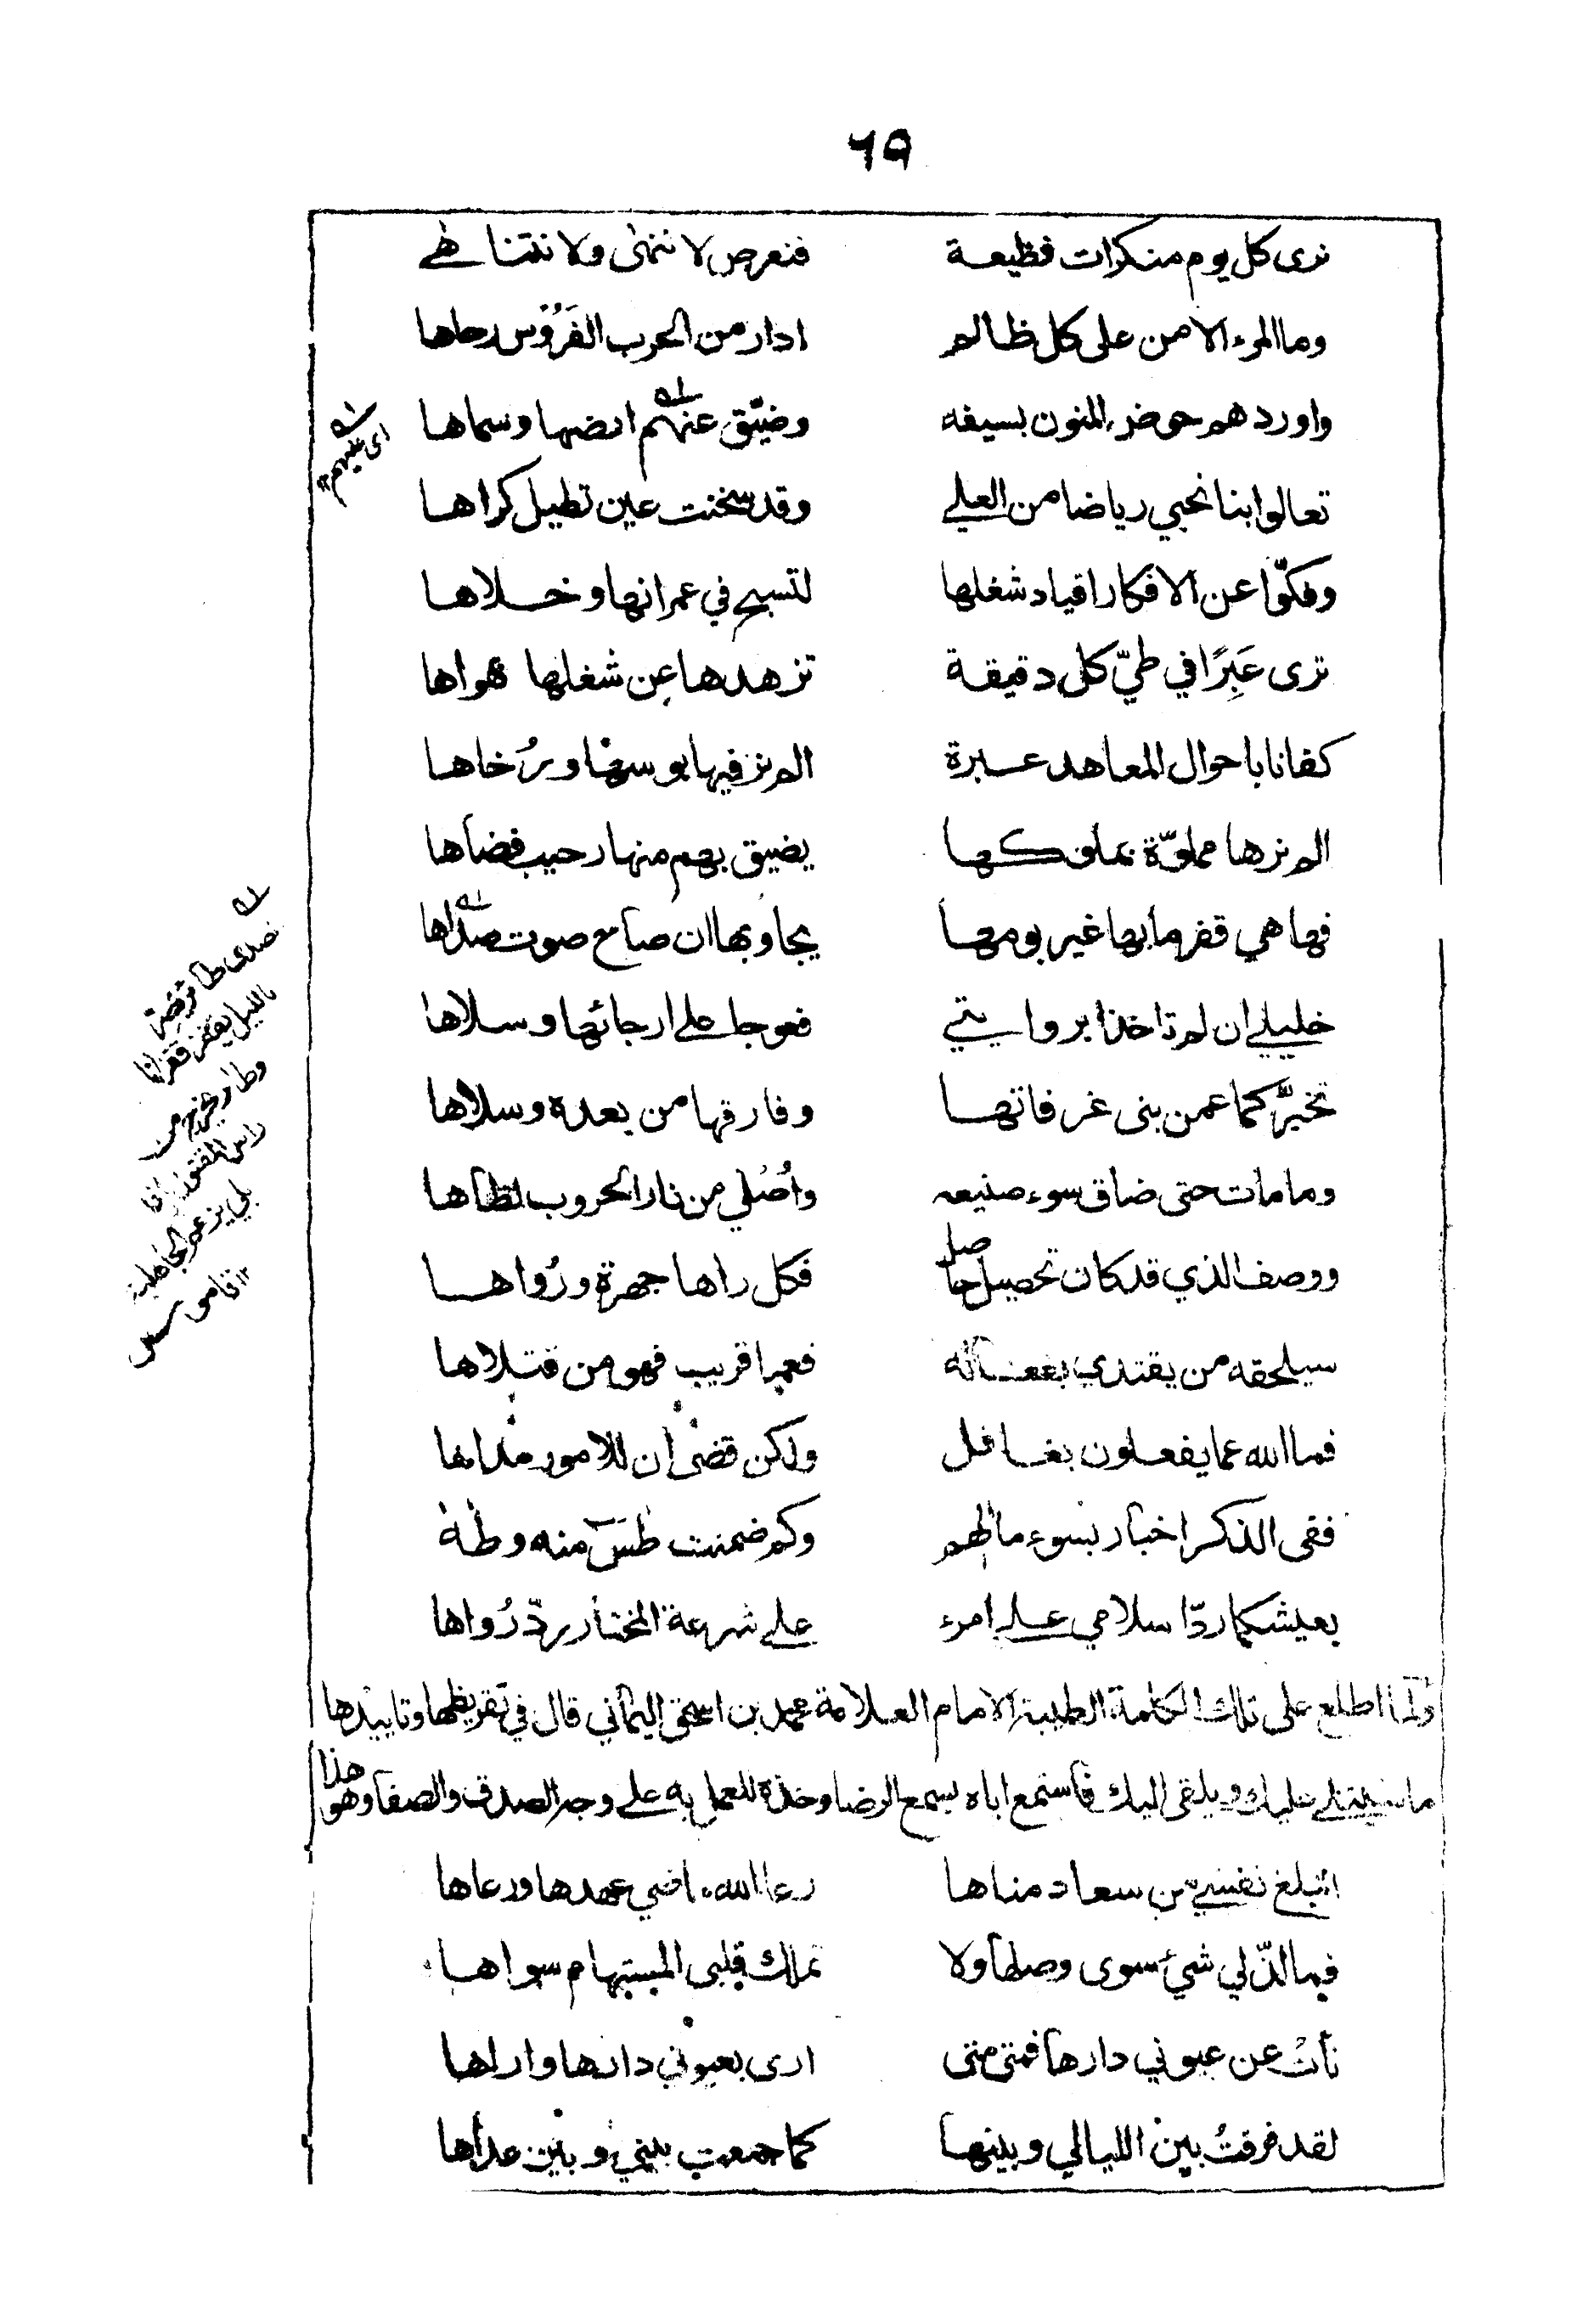 ٦٩
نرى كل يوم منكرات فظيعة فنعرض لا ننهى ولا نتناهى
وما المرء الا من على كل ظالم ادار من الحرب الضَرُوس رحاها
واوردهم حوض المنون بسيفه وضيّق عنهم ارضها وسماها
اى عليهم
تعالوا بنا نحيي رياضا من العلي وقد سخنت عين تطيل كراها
وفكّوا عن الافكار اقياد شغلها لتسبح في عمرانها وخلاها
ترى عَبِرًا في طيّ كل دقيقة تزهدها عن شغلها بهواها
كفانا باحوال المعاهد عبرة الم نر فيها بوسها ورُخاها
الم نرها مملوّة بملوكها يضيق بهم منها رحيب فضاها
فها هي قفر ما بها غير بومها يجاوبها ان صاح صوت صداها
خليلي ان لم تاخذا بروايتي فعوجا على ارجائها وسلاها
تخبّركما عمن بنى غرفاتها وفارقها من بعده وسلاها
وما مات حتى ضاق سوء صنيعه واُصْلي من نار الحروب لظاها
ووصف الذي قد كان تحصيل حاصل فكل راها جهرة ورُواها
سيلحقه من يقتدي بفعاله فعما قريب فهو من قتلاها
فما الله عما يفعلون بغافل ولكن قضى ان للامور مداها
ففى الذكر اخبار بسوء مالهم وكم ضمنت طس منه وطه
بعيشكما ردّا سلامي على امرء على شرعة المختار ردّ رُواها
ولما اطلع على تلك الكلمة الطيبة الامام العلامة محمد بن اسحق اليماني قال في تقريظها وتاييدها
ما سيتلى عليك ويلقى اليك فاستمع اياه بسمع الرضا وخذه للعمل به على وجه الصدق والصفا وهو هذا
اتبلغ نفسي من سعاد مناها رعا الله ماضي عهدها ورعاها
فما لذّ لي شيء سوى وصلها ولا تملك قلبي المستهام سواها
نأت عن عيوني دارها فمتى متى ارى بعيوني دارها واراها
لقد فرقتْ بين الليالي وبينها كما جمعت بيني وبين عداها
صدى طائر يصيح
بالليل يقفز قفزانا
وطائر يخرج من
راس المقتول اذا
بلي بزعم الجاهلية
١٢ قاموس